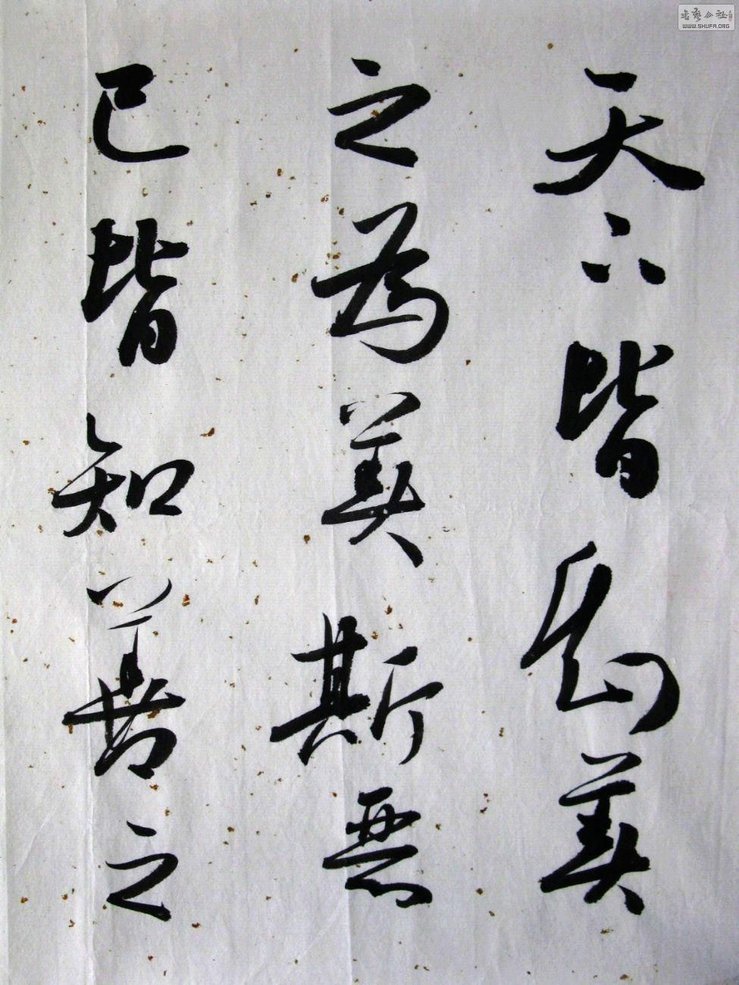 天下皆知美
之为美斯恶
已皆知善之
WWW.SHUFA.ORG